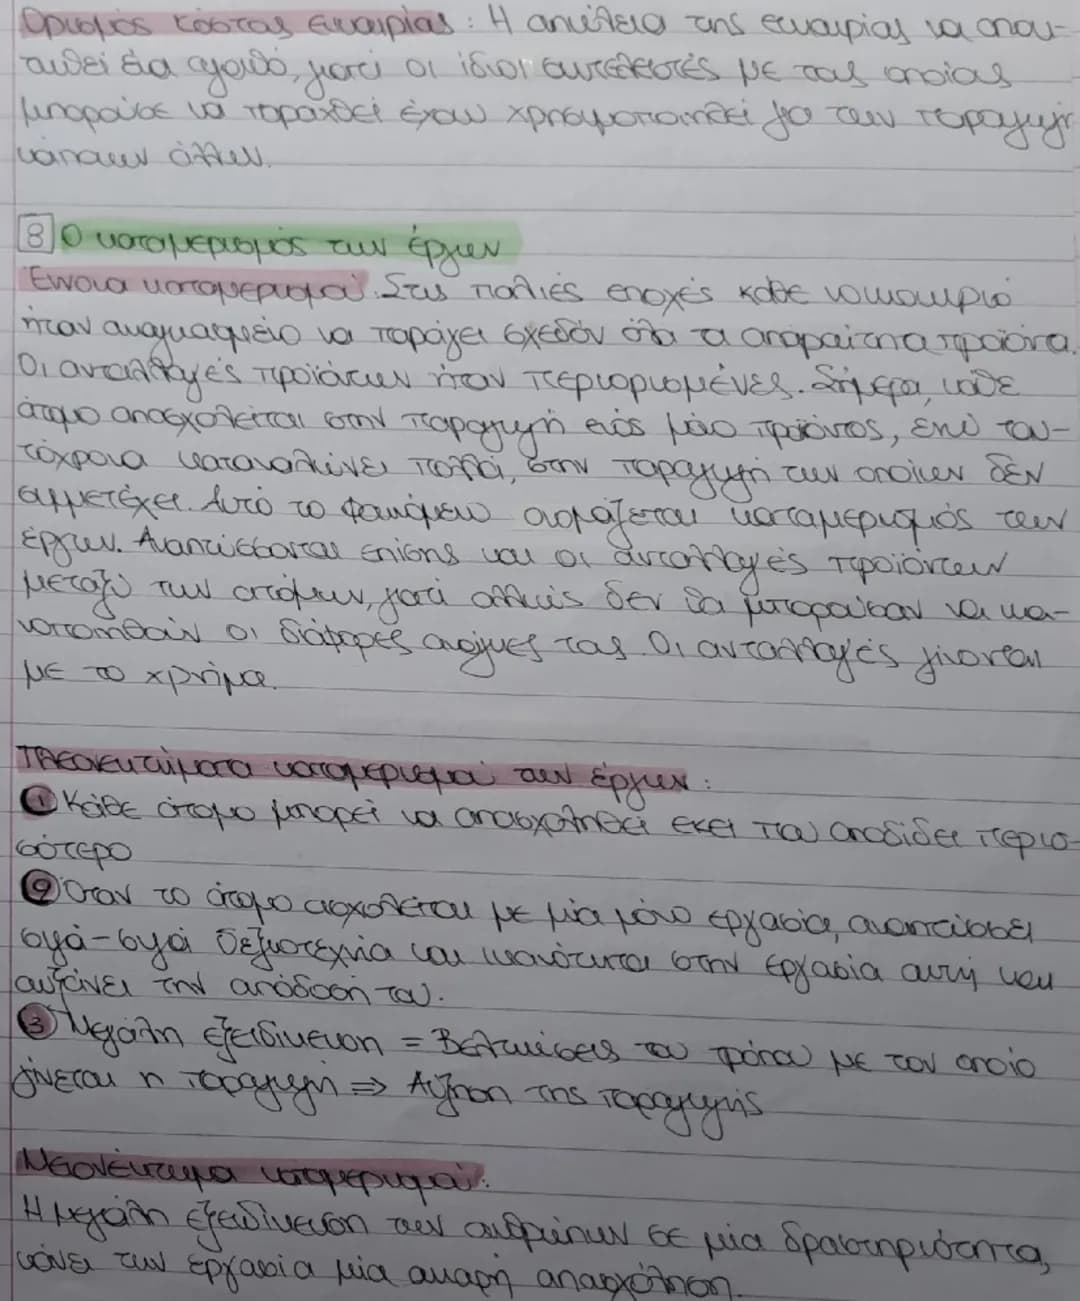 Ορισμός κόστος ευκαιρίας: Η απώλεια της ευκαιρίας να απολ-
αυθεί ένα αγαθό, γιατί οι ίδιοι συντελεστές με τους οποίους
μπορούσε να παραχθεί έχουν χρησιμοποιηθεί για την παραγωγή
κάποιου άλλου.
8 Ο καταμερισμός των έργων
Έννοια καταμερισμού: Στις παλιές εποχές κάθε νοικοκυριό
ήταν αναγκασμένο να παράγει σχεδόν όλα τα απαραίτητα προϊόντα.
Οι ανταλλαγές προϊόντων ήταν περιορισμένες. Σήμερα, κάθε
άτομο απασχολείται στην παραγωγή ενός μόνο προϊόντος, ενώ ταυ-
τόχρονα καταναλώνει πολλά, στην παραγωγή των οποίων δεν
συμμετέχει. Αυτό το φαινόμενο ονομάζεται καταμερισμός των
έργων. Αναπτύσσονται επίσης και οι ανταλλαγές προϊόντων
μεταξύ των ατόμων, γιατί αλλιώς δεν θα μπορούσαν να ικα-
νοποιηθούν οι διάφορες ανάγκες τους. Οι ανταλλαγές γίνονται
με το χρήμα.
Πλεονεκτήματα καταμερισμού των έργων:
1 Κάθε άτομο μπορεί να απασχοληθεί εκεί που αποδίδει περισ-
σότερο
2 Όταν το άτομο ασχολείται με μία μόνο εργασία, αναπτύσσει
σιγά-σιγά δεξιοτεχνία και ικανότητα στην εργασία αυτή και
αυξάνει την απόδοσή του.
3 Μεγάλη εξειδίκευση = Βελτιώσεις του τρόπου με τον οποίο
γίνεται η παραγωγή ⇒ Αύξηση της παραγωγής
Μειονέκτημα καταμερισμού:
Η μεγάλη εξειδίκευση των ανθρώπων σε μία δραστηριότητα,
κάνει την εργασία μία ανιαρή απασχόληση.